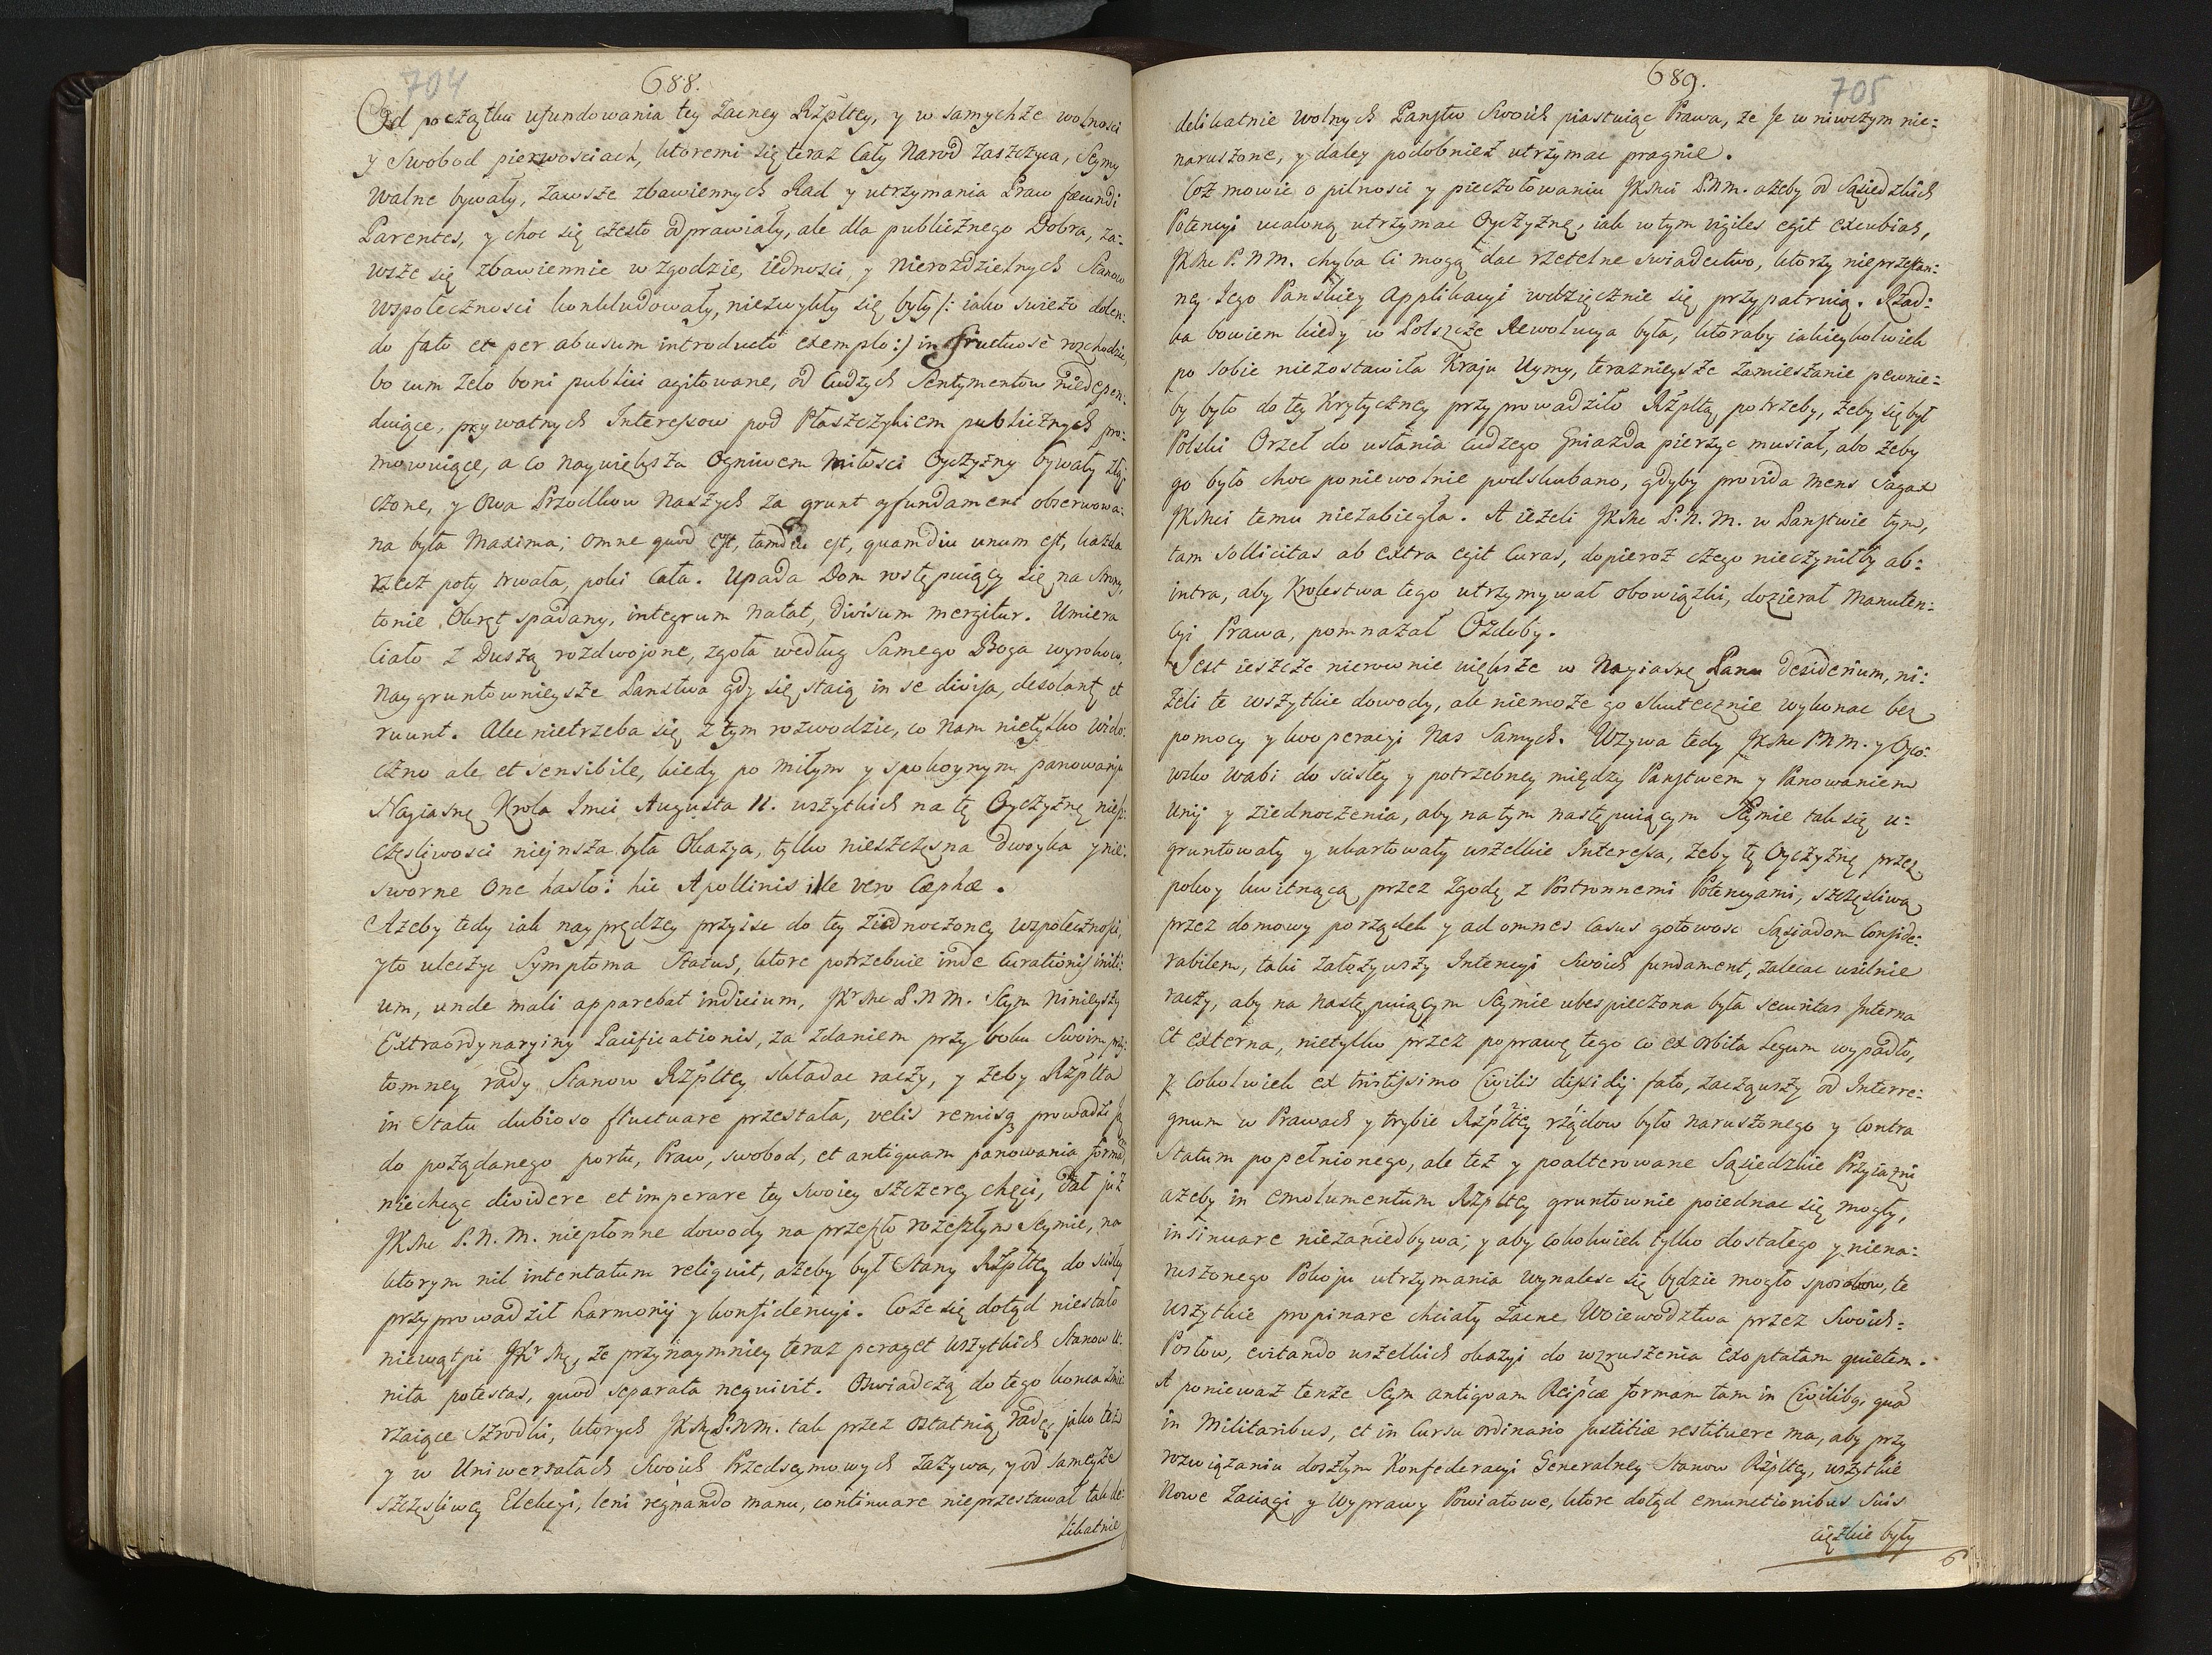 704 688.
Od początku ufundowania tey Zacney Rzpltey, y w samychże wolnosci
y Swobod pierwosciach, ktoremi się teraz Cały Narod zaszczyca, Seymy
Walne bywały, zawsze zbawiennych Rad y utrzymania Praw fæcundi
Parentes, y choc się często odprawiały, ale dla publicznego Dobra, za-
wsze się zbawiennie w zgodzie, iednosci, y nierozdzielnych Stanow
wspolecznosci konkludowały, niezwykły się były /: iako swiezo dolen-
do fato et per abusum introducto exemplo :/ infructuosè rozchodzic,
bo cum zelo boni publici agitowane, od Cudzych Sentymentow niedepen-
duiące, prywatnych Interessow pod Płaszczykiem publicznych pro-
mowuiące, a co naywiększa Ogniwem Miłosci Oyczyzny bywały złą-
czone, y Owa Przodkow Naszych za grunt y fundament obserwowa-
na była Maxima; omne quod est, tamdiu est, quamdiu unum est, kazda
rzecz poty trwała, poki Cała. Upada Dom rostępuiący się na Strony,
tonie Okręt spadany, integrum natat, divisum mergitur. Umiera
Ciało z Duszą rozdwojone, zgoła według Samego Boga wyrokow,
naygruntownieysze Panstwa gdy się staią in se divisa, desolant et
ruunt. Alec nietrzeba się z tym rozwodzic, co Nam nietylko wido-
czno ale et sensibile, kiedy po miłym y spokoynym panowaniu
Nayiasnę Krola Jmci Augusta II. wszytkich na tę Oyczyznę niesz-
częsliwosci nieinsza była Okazya, tylko nieszczęsna dwoyka y nie-
sworne One hasło: hic Apollinis ille vero Cæphæ.
Azeby tedy iak nayprędzey przyisc do tey ziednoczoney wspolecznosci,
y to uleczyc Symptoma Status, ktore potrzebuie inde Curationis initi-
um, unde mali apparebat indicium, JKr Mc P. N M. Seym ninieyszy
Extraordynaryiny Pacificationis, za zdaniem przy boku Swoim przy-
tomney rady Stanow Rzpltey składac raczy, y zeby Rzplta
in Statu dubioso fluctuare przestała, velis remisq prowadzi ją
do poządanego portu, Praw, swobod, et antiquam panowania formę,
niechcąc dividere et imperare tey swoiey szczerey chęci, dał już
JKMc P. N. M. niepłonne dowody na przeszło rozeszłym Seymie, na
ktorym nil intentatum reliquit, azeby był Stany Rzpltey do scisłey
przyprowadził harmonij y konfidencyi. Coze się dotąd niestało
niewątpi JKr Mc, że przynaymniey teraz peraget wszytkich Stanow U-
nita potestas, quod separata nequivit. Oswiadczą do tego konca zmie-
rzaiące Szrodki, ktorych JKMc P. N M. tak przez ostatnią Radę, jako też
y w Uniwersałach Swoich Przedseymowych zazywa, y od sameyze
szczęsliwey Elekcyi, leni regnando manu, continuare nieprzestawał tak de-
likatnie
689. 705
delikatnie wolnych Panstw Swoich piastuiąc Prawa, że je w niwczym nie-
naruszone, y daley podobniez utrzymac pragnie.
Coż mowic o pilnosci y pieczołowaniu JKMci P. N M. azeby od Sąsiedzkich
Potencyi ucaloną utrzymac Oyczyznę, iak w tym vigiles egit excubias,
JKMc P. N M. chyba Ci mogą dac rzetelne swiadectwo, ktorzy nieprzestan-
ney Jego Panskiey Applikacyi wdzięcznie się przypatruią. Rzad-
ka bowiem kiedy w Polszcze Rewolucya była, ktoraby iakieykolwiek
po sobie niezostawiła Kraju Uymy, teraznieysze zamieszanie pewnie-
by było do tey Krytyczney przyprowadziło Rzpltą potrzeby, żeby się był
Polski Orzeł do usłania Cudzego Gniazda pierzyc musiał, abo żeby
go było choc poniewolnie podskubano, gdyby provida Mens Sagax
JKMci temu niezabiegła. A ieżeli JKMc P. N. M. w Panstwie tym,
tam sollicitas ab extra egit Curas, dopieroz czego nieczyniłby ab-
intra, aby Krolestwa tego utrzymywał obowiązki, dozierał Manuten-
cyi Prawa, pomnazał Ozdoby.
Jest ieszcze nierownie większe w Nayiasnę Panu Desiderium, ni-
żeli te wszytkie dowody, ale niemoże go skutecznie wykonac bez
pomocy y kooperacyi Nas Samych. Wzywa tedy JKMc P. N M. y Oyco-
wsko wabi do scisłey y potrzebney między Panstwem y Panowaniem
Unij y Ziednoczenia, aby na tym następuiącym Seymie tak się u-
gruntowały y ukartowały wszelkie Interessa, żeby tę Oyczyznę przez
pokoy kwitnącą, przez Zgodę z Postronnemi Potencyami, szczęsliwą
przez domowy porządek y ad omnes casus gotowosc Sąsiadom Conside-
rabilem, taki załozywszy Intencyi Swoich fundament, zalecac usilnie
raczy, aby na następuiącym Seymie ubespieczona była securitas Interna
et externa, nietylko przez poprawę tego co ex orbita legum wypadło,
y Cokolwiek ex tristissimo Civilis dissidij fato, zacząwszy od Interre-
gnum w Prawach y trybie Rzpltey rządow było naruszonego y Contra
Statum popełnionego, ale też y poalterowane Sąsiedzkie Przyiazni
azeby in emolumentum Rzpltey gruntownie poiednac się mogły,
insinuare niezaniedbywa; y aby Cokolwiek tylko dostałego y niena-
ruszonego Pokoju utrzymania wynalesc się będzie mogło sposobow, te
wszytkie propinare chciały Zacne Woiewodztwa przez Swoich-
Posłow, evitando wszelkich okazyi do wzruszenia exoptatam quietem.
A poniewaz tenze Seym antiquam Reipcæ formam tam in Civilibq, quã
in Militaribus, et in Cursu ordinario justitiæ restituere ma, aby przy
rozwiązaniu doszłym Konfederacyi Generalney Stanow Rzpltey, wszytkie
Nowe Zaciągi y Wyprawy Powiatowe, ktore dotąd emunctionibus Suis
cięzkie były